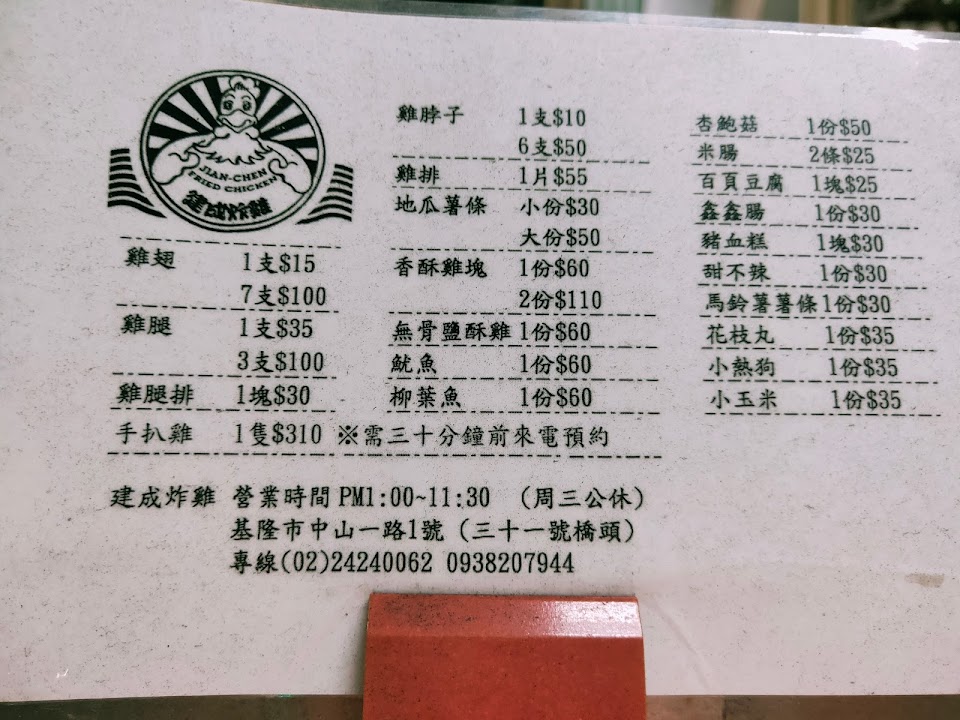 JIAN-CHEN
FRIED CHICKEN
建成炸雞
雞翅 1支$15
7支$100
雞腿 1支$35
3支$100
雞腿排 1塊$30
手扒雞 1隻$310 ※需三十分鐘前來電預約
雞脖子 1支$10
6支$50
雞排 1片$55
地瓜薯條 小份$30
大份$50
香酥雞塊 1份$60
2份$110
無骨鹽酥雞 1份$60
魷魚 1份$60
柳葉魚 1份$60
杏鮑菇 1份$50
米腸 2條$25
百頁豆腐 1塊$25
鑫鑫腸 1份$30
豬血糕 1塊$30
甜不辣 1份$30
馬鈴薯薯條 1份$30
花枝丸 1份$35
小熱狗 1份$35
小玉米 1份$35
建成炸雞 營業時間 PM1:00~11:30 (周三公休)
基隆市中山一路1號 (三十一號橋頭)
專線(02)24240062 0938207944